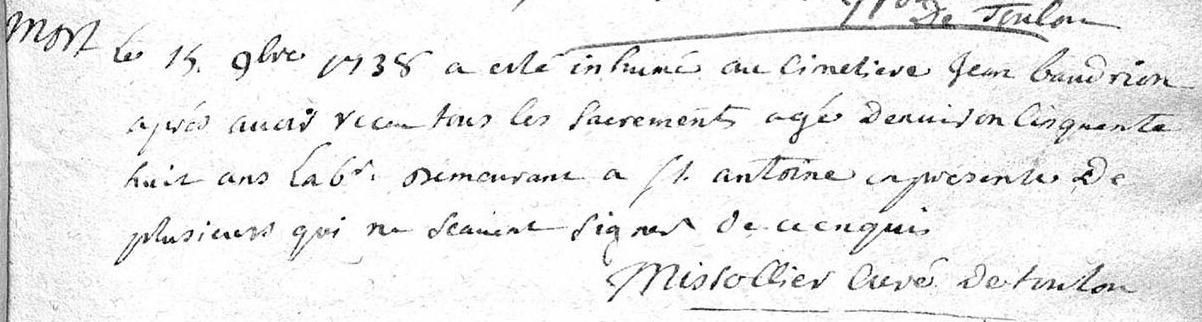 De Toulon
mort
le 15. 9bre 1738 a esté inhumé au cimetiere Jean baudrion
aprés avoir receu tous les sacrements agé denviron cinquante
huit ans labr. demeurant a St. antoine en presence De
plusieurs qui ne scavent signer de ce enquis
Missollier curé de toulon